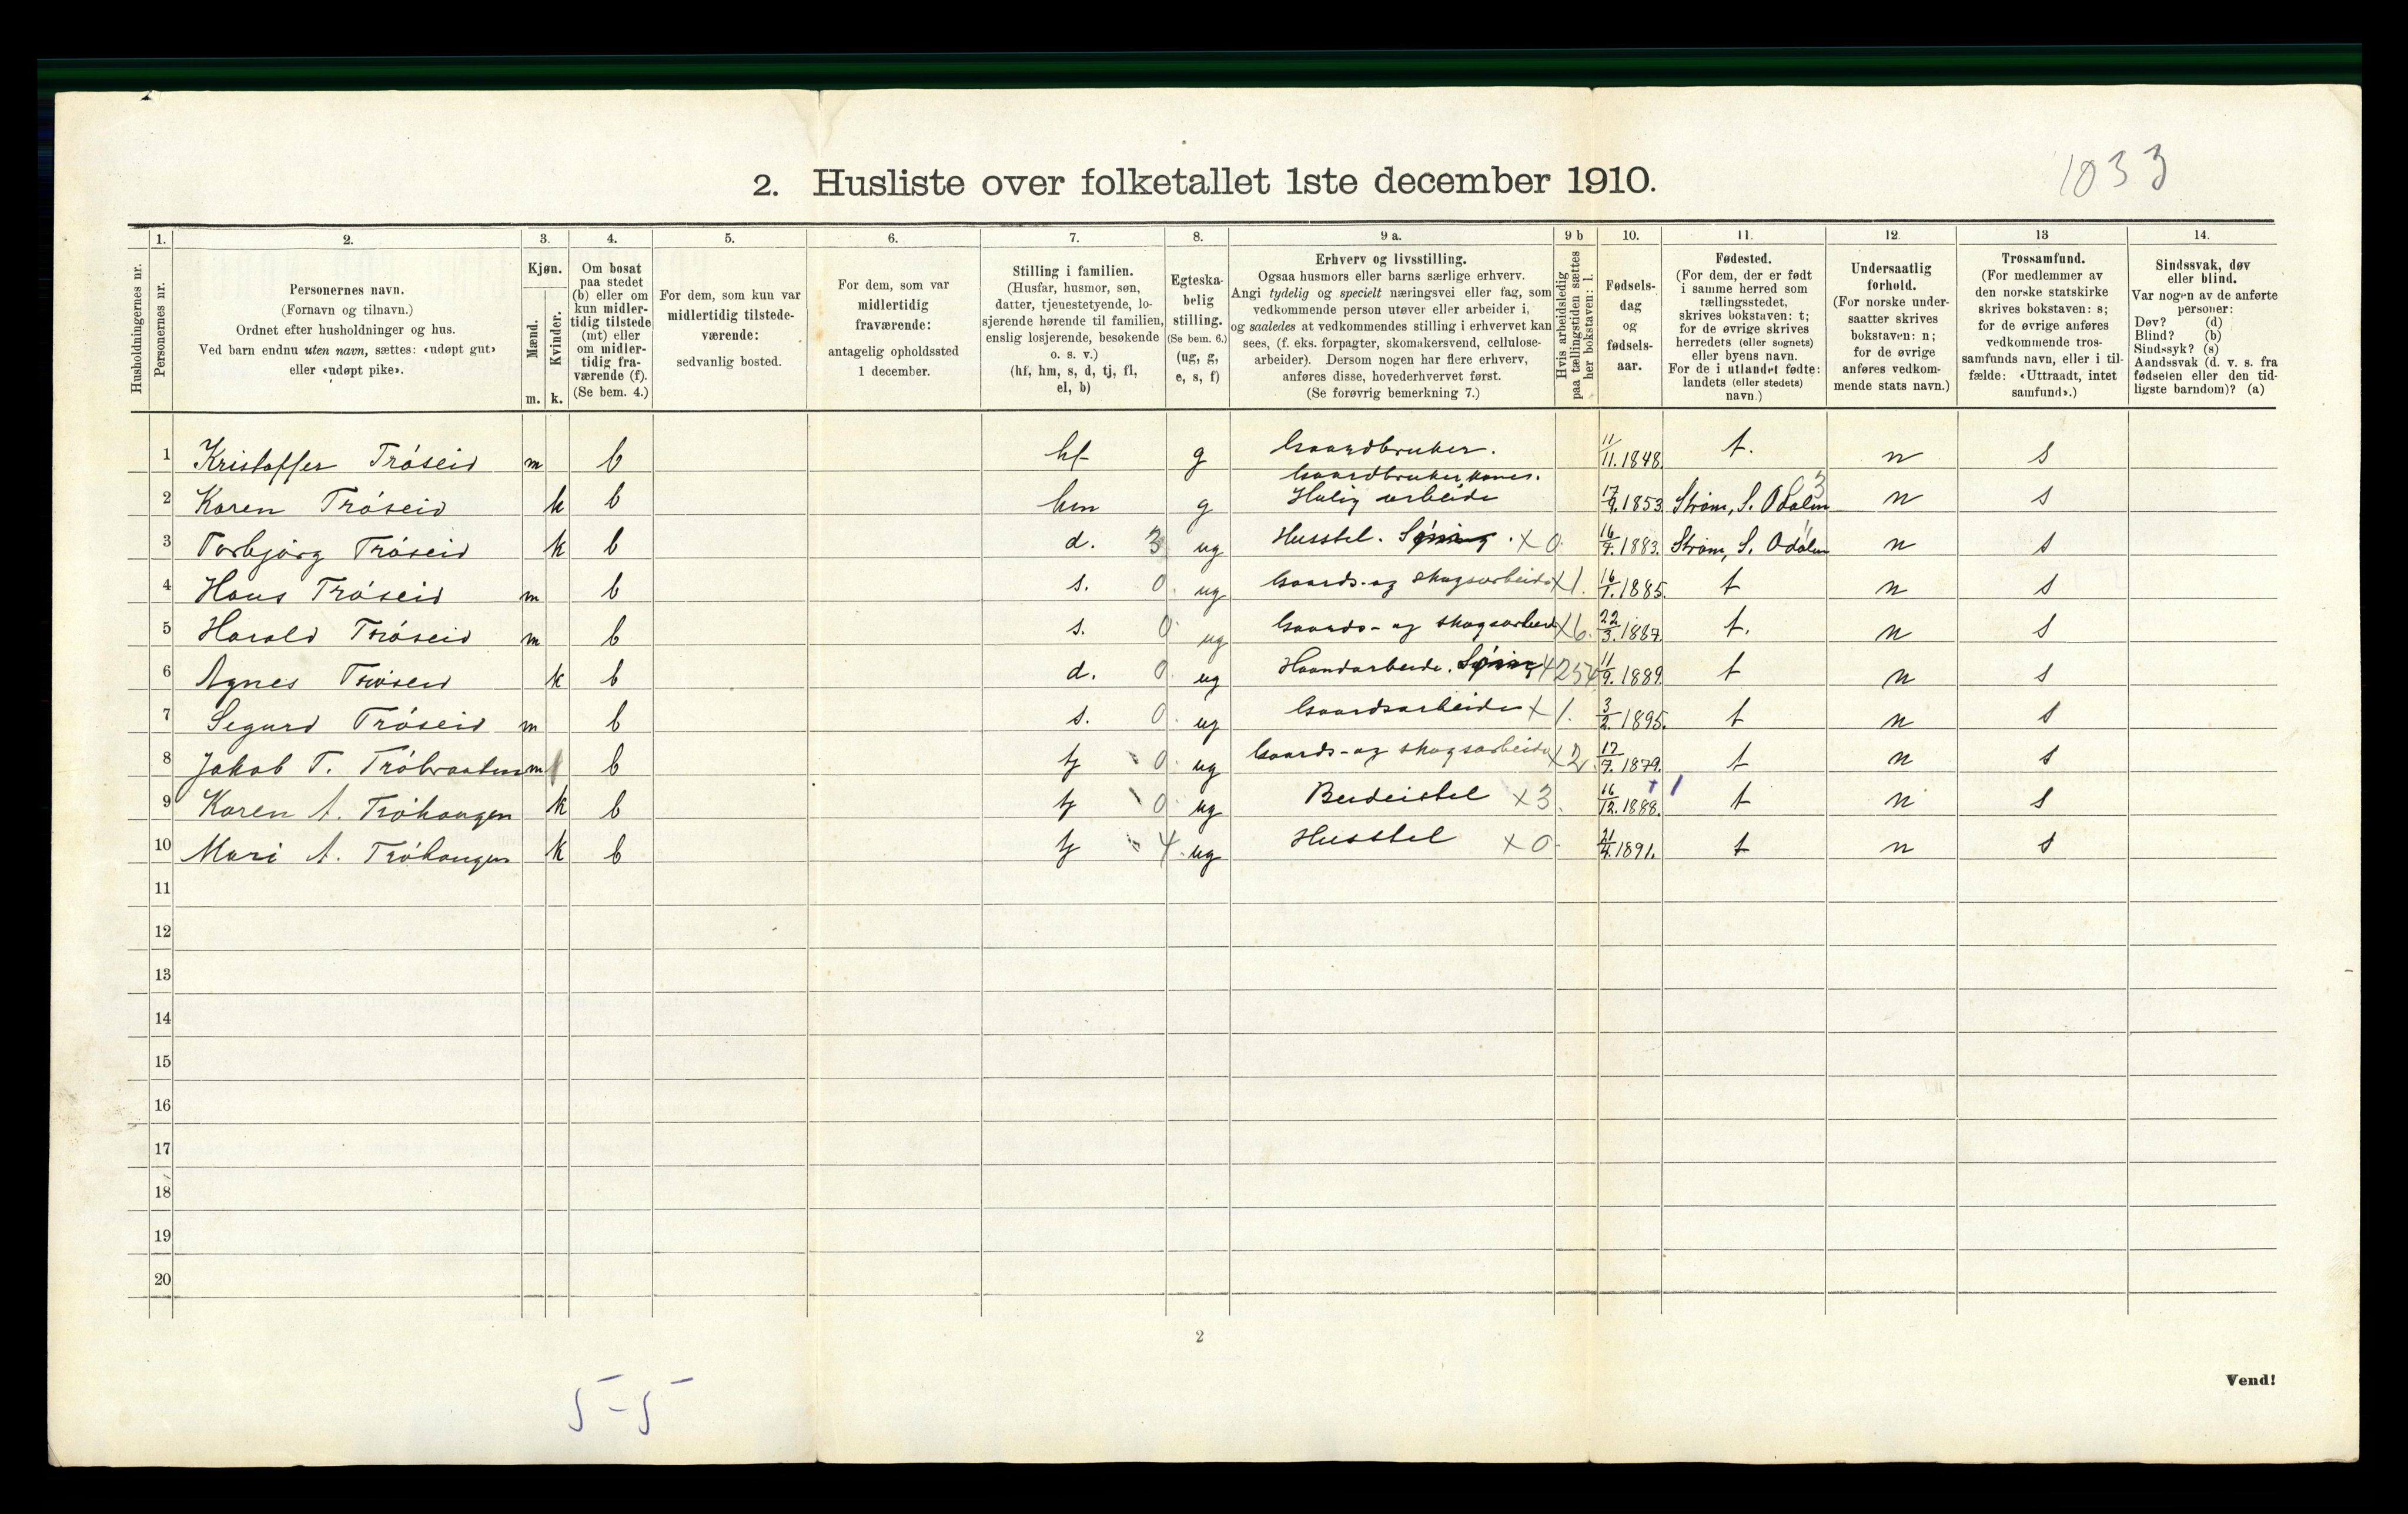 1033
2. Husliste over folketallet 1ste december 1910.
Husholdningernes nr.
1. Personernes nr.
2. Personernes navn.
(Fornavn og tilnavn.)
Ordnet efter husholdninger og hus.
Ved barn endnu uten navn, sættes: «udøpt gut»
eller «udøpt pike».
3. Kjøn.
Mænd. m.
Kvinder. k.
4. Om bosat
paa stedet
(b) eller om
kun midler-
tidig tilstede
(mt) eller
om midler-
tidig fra-
værende (f).
(Se bem. 4.)
5. For dem, som kun var
midlertidig tilstede-
værende:
sedvanlig bosted.
6. For dem, som var
midlertidig
fraværende:
antagelig opholdssted
1 december.
7. Stilling i familien.
(Husfar, husmor, søn,
datter, tjenestetyende, lo-
sjerende hørende til familien,
enslig losjerende, besøkende
o. s. v.)
(hf, hm, s, d, tj, fl,
el, b)
8. Egteska-
belig
stilling.
(Se bem. 6.)
(ug, g,
e, s, f)
9 a. Erhverv og livsstilling.
Ogsaa husmors eller barns særlige erhverv.
Angi tydelig og specielt næringsvei eller fag, som
vedkommende person utøver eller arbeider i,
og saaledes at vedkommendes stilling i erhvervet kan
sees, (f. eks. forpagter, skomakersvend, cellulose-
arbeider). Dersom nogen har flere erhverv,
anføres disse, hovederhvervet først.
(Se forøvrig bemerkning 7.)
9 b Hvis arbeidsledig
paa tællingstiden sættes
her bokstaven: l.
10. Fødsels-
dag
og
fødsels-
aar.
11. Fødested.
(For dem, der er født
i samme herred som
tællingsstedet,
skrives bokstaven: t;
for de øvrige skrives
herredets (eller sognets)
eller byens navn.
For de i utlandet fødte:
landets (eller stedets)
navn.)
12. Undersaatlig
forhold.
(For norske under-
saatter skrives
bokstaven: n;
for de øvrige
anføres vedkom-
mende stats navn.)
13 Trossamfund.
(For medlemmer av
den norske statskirke
skrives bokstaven: s;
for de øvrige anføres
vedkommende tros-
samfunds navn, eller i til-
fælde: «Uttraadt, intet
samfund».)
14. Sindssvak, døv
eller blind.
Var nogen av de anførte
personer:
Døv? (d)
Blind? (b)
Sindssyk? (s)
Aandssvak (d. v. s. fra
fødselen eller den tid-
ligste barndom)? (a)
1 Kristoffer Tröseid m b hf g Gaardbruker. 11/11. 1848. t. n s
Gaardbrukerkones.
2 Karen Tröseid k b hm g Huslig arbeide 17/9. 1853 Strøm, S. Odalen 3 n s
3 Torbjörg Tröseid k b d. 3 ug Husstel. Syning. x 0 16/7. 1883. Strøm, S. Odalen n s
4 Hans Tröseid m b s. 0. ug Gaards- og skogsarbeide x 1. 16/1. 1885. t n s
5 Harald Tröseid m b s. 0. ug Gaards- og skogsarbeid x 6. 22/3. 1887. t. n s
6 Agnes Tröseid k b d. 0. ug Haandarbeide. Syning 11/9. 1889. t n s
7 Sigurd Tröseid m b s. 0. ug Gaardsarbeider x 1. 3/2. 1895. t n s
8 Jakob T. Tröbraaten m b tj 0. ug Gaards- og skogsarbeide x 2. 17/7. 1879. t n s
9 Karen A. Tröhaugen k b tj 0. ug Budeistel x 3. 16/12. 1888. + 1 t n s
10 Mari A. Tröhaugen k b tj 4. ug Husstel x 0 21/4. 1891. t n s
11
12
13
14
15
16
17
18
19
20
2
Vend!
5-5